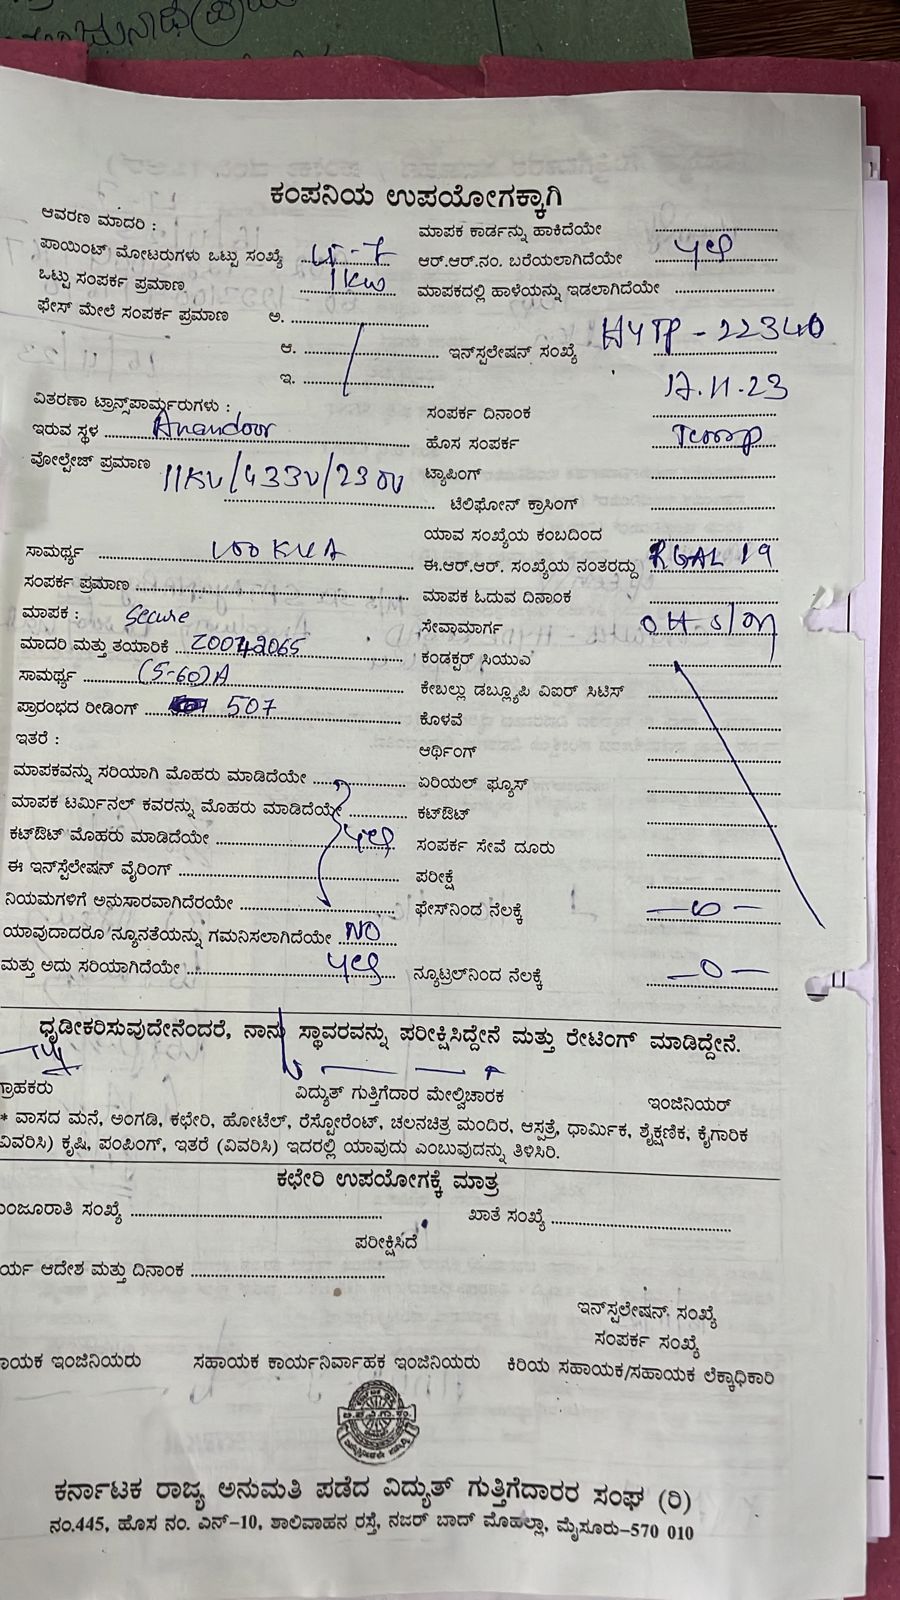 ಕಂಪನಿಯ ಉಪಯೋಗಕ್ಕಾಗಿ
ಆವರಣ ಮಾದರಿ :
ಮಾಪಕ ಕಾರ್ಡನ್ನು ಹಾಕಿದೆಯೇ
ಪಾಯಿಂಟ್ ಮೋಟರುಗಳು ಒಟ್ಟು ಸಂಖ್ಯೆ
ಆರ್.ಆರ್.ನಂ. ಬರೆಯಲಾಗಿದೆಯೇ yes
ಒಟ್ಟು ಸಂಪರ್ಕ ಪ್ರಮಾಣ 1KW
ಮಾಪಕದಲ್ಲಿ ಹಾಳೆಯನ್ನು ಇಡಲಾಗಿದೆಯೇ
ಫೇಸ್ ಮೇಲೆ ಸಂಪರ್ಕ ಪ್ರಮಾಣ ಅ.
ಆ.
ಇನ್‌ಸ್ಟಲೇಷನ್ ಸಂಖ್ಯೆ HYTP-22340
ಇ.
ವಿತರಣಾ ಟ್ರಾನ್ಸ್‌ಪಾರ್ಮ್ಸರುಗಳು :
ಸಂಪರ್ಕ ದಿನಾಂಕ 17.11.23
ಇರುವ ಸ್ಥಳ Anandoor
ಹೊಸ ಸಂಪರ್ಕ Temp
ವೋಲ್ಟೇಜ್ ಪ್ರಮಾಣ 11KV/433V/230V
ಟ್ಯಾಪಿಂಗ್
ಟೆಲಿಫೋನ್ ಕ್ರಾಸಿಂಗ್
ಯಾವ ಸಂಖ್ಯೆಯ ಕಂಬದಿಂದ
ಸಾಮರ್ಥ್ಯ 100 KVA
ಈ.ಆರ್.ಆರ್. ಸಂಖ್ಯೆಯ ನಂತರದ್ದು RGAL 19
ಸಂಪರ್ಕ ಪ್ರಮಾಣ
ಮಾಪಕ ಓದುವ ದಿನಾಂಕ
ಮಾಪಕ : Secure
ಸೇವಾಮಾರ್ಗ OH-S/m
ಮಾದರಿ ಮತ್ತು ತಯಾರಿಕೆ Z0042065
ಕಂಡಕ್ಟರ್ ಸಿಯುಎ
ಸಾಮರ್ಥ್ಯ (5-60)A
ಕೇಬಲ್ಲು ಡಬ್ಲ್ಯೂಪಿ ವಿಐರ್ ಸಿಟಿಸ್
ಪ್ರಾರಂಭದ ರೀಡಿಂಗ್ 507
ಕೊಳವೆ
ಇತರೆ :
ಆರ್ಥಿಂಗ್
ಮಾಪಕವನ್ನು ಸರಿಯಾಗಿ ಮೊಹರು ಮಾಡಿದೆಯೇ
ಏರಿಯಲ್ ಫ್ಯೂಸ್
ಮಾಪಕ ಟರ್ಮಿನಲ್ ಕವರನ್ನು ಮೊಹರು ಮಾಡಿದೆಯೇ
ಕಟ್‌ಔಟ್
ಕಟ್‌ಔಟ್ ಮೊಹರು ಮಾಡಿದೆಯೇ yes
ಸಂಪರ್ಕ ಸೇವೆ ದೂರು
ಈ ಇನ್‌ಸ್ಪೆಲೇಷನ್ ವೈರಿಂಗ್
ಪರೀಕ್ಷೆ
ನಿಯಮಗಳಿಗೆ ಅನುಸಾರವಾಗಿದೆರಯೇ
ಫೇಸ್‌ನಿಂದ ನೆಲಕ್ಕೆ —0—
ಯಾವುದಾದರೂ ನ್ಯೂನತೆಯನ್ನು ಗಮನಿಸಲಾಗಿದೆಯೇ NO
ಮತ್ತು ಅದು ಸರಿಯಾಗಿದೆಯೇ yes
ನ್ಯೂಟ್ರಲ್‌ನಿಂದ ನೆಲಕ್ಕೆ —0—
ಧೃಡೀಕರಿಸುವುದೇನೆಂದರೆ, ನಾನು ಸ್ಥಾವರವನ್ನು ಪರೀಕ್ಷಿಸಿದ್ದೇನೆ ಮತ್ತು ರೇಟಿಂಗ್ ಮಾಡಿದ್ದೇನೆ.
ಗ್ರಾಹಕರು
ವಿದ್ಯುತ್ ಗುತ್ತಿಗೆದಾರ ಮೇಲ್ವಿಚಾರಕ
ಇಂಜಿನಿಯರ್
* ವಾಸದ ಮನೆ, ಅಂಗಡಿ, ಕಛೇರಿ, ಹೋಟೆಲ್, ರೆಸ್ಟೋರೆಂಟ್, ಚಲನಚಿತ್ರ ಮಂದಿರ, ಆಸ್ಪತ್ರೆ, ಧಾರ್ಮಿಕ, ಶೈಕ್ಷಣಿಕ, ಕೈಗಾರಿಕ
ವಿವರಿಸಿ) ಕೃಷಿ, ಪಂಪಿಂಗ್, ಇತರೆ (ವಿವರಿಸಿ) ಇದರಲ್ಲಿ ಯಾವುದು ಎಂಬುವುದನ್ನು ತಿಳಿಸಿರಿ.
ಕಛೇರಿ ಉಪಯೋಗಕ್ಕೆ ಮಾತ್ರ
ಮಂಜೂರಾತಿ ಸಂಖ್ಯೆ
ಖಾತೆ ಸಂಖ್ಯೆ
ಪರೀಕ್ಷಿಸಿದೆ
ರ್ಯ ಆದೇಶ ಮತ್ತು ದಿನಾಂಕ
ಇನ್‌ಸ್ಪಲೇಷನ್ ಸಂಖ್ಯೆ
ಸಂಪರ್ಕ ಸಂಖ್ಯೆ
ಾಯಕ ಇಂಜಿನಿಯರು
ಸಹಾಯಕ ಕಾರ್ಯನಿರ್ವಾಹಕ ಇಂಜಿನಿಯರು
ಕಿರಿಯ ಸಹಾಯಕ/ಸಹಾಯಕ ಲೆಕ್ಕಾಧಿಕಾರಿ
ಕರ್ನಾಟಕ ರಾಜ್ಯ ಅನುಮತಿ ಪಡೆದ ವಿದ್ಯುತ್ ಗುತ್ತಿಗೆದಾರರ ಸಂಘ (ರಿ)
ನಂ.445, ಹೊಸ ನಂ. ಎನ್-10, ಶಾಲಿವಾಹನ ರಸ್ತೆ, ನಜರ್ ಬಾದ್ ಮೊಹಲ್ಲಾ, ಮೈಸೂರು-570 010